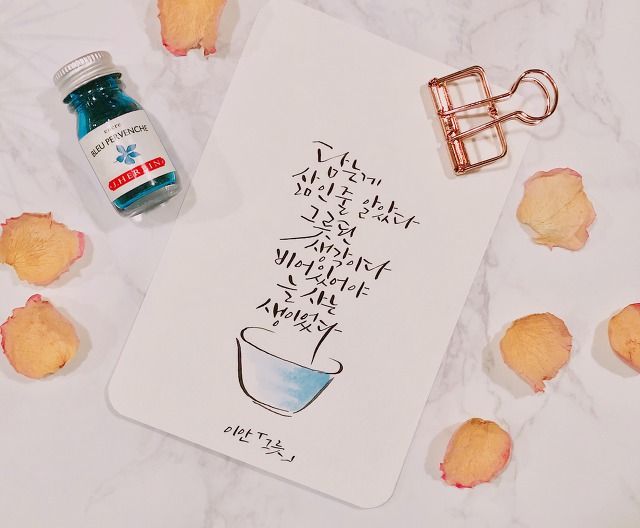 ENCRE
BLEU PERVENCHE
J.HERBIN
담는게
삶인줄 알았다
그릇된
생각이다
비어있어야
늘 사는
생이었다
이안「그릇」